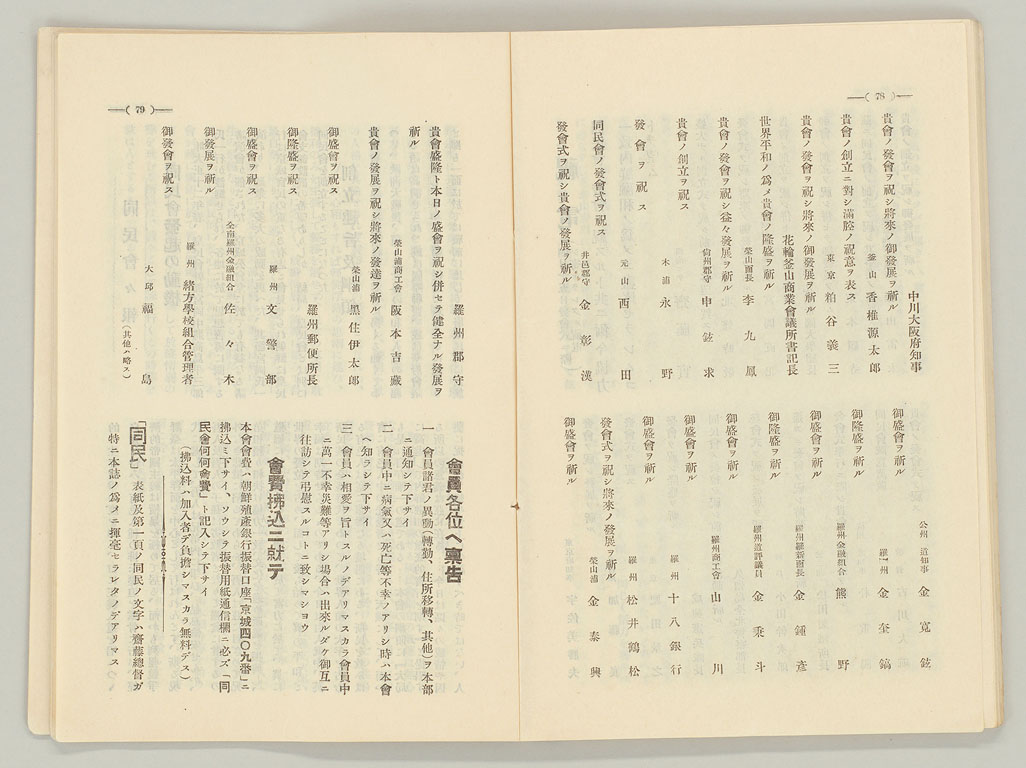 ( 78 )
中川大阪府知事
貴會ノ發會ヲ祝シ將來ノ御發展ヲ祈ル
釜山 香椎源太郎
貴會ノ創立ニ對シ滿腔ノ祝意ヲ表ス
東京 粕谷義三
貴會ノ發會ヲ祝シ將來ノ御發展ヲ祈ル
花輪釜山商業會議所書記長
世界平和ノ爲メ貴會ノ隆盛ヲ祈ル
榮山面長 李九鳳
貴會ノ發會ヲ祝シ益々發展ヲ祈ル
郡守 申鉉求
貴會ノ創立ヲ祝ス
木浦 永野
發會ヲ祝ス
元山 西田
同民會ノ發會式ヲ祝ス
井邑郡守 金彰漢
發會式ヲ祝シ貴會ノ發展ヲ祈ル
公州 道知事 金寬鉉
御盛會ヲ祈ル
羅州 金奎鎬
御隆盛ヲ祈ル
羅州金融組合 熊野
御盛會ヲ祈ル
羅州羅新面長 金鍾彦
御隆盛ヲ祈ル
羅州道評議員 金秉斗
御盛會ヲ祈ル
羅州商工會 山川
御盛會ヲ祈ル
羅州 十八銀行
御盛會ヲ祈ル
羅州 松井鶴松
發會式ヲ祝シ將來ノ發展ヲ祈ル
榮山浦 金泰興
御盛會ヲ祈ル
( 79 )
羅州郡守
貴會盛隆ト本日ノ盛會ヲ祝シ併セテ健全ナル發展ヲ
祈ル
榮山浦商工會 阪本吉藏
貴會ノ發展ヲ祝シ將來ノ發達ヲ祈ル
榮山浦 黑住伊太郎
御盛會ヲ祝ス
羅州郵便所長
御隆盛ヲ祝ス
羅州 文警部
御盛會ヲ祝ス
全南羅州金融組合 佐々木
御發展ヲ祈ル
羅州 緒方學校組合管理者
御發會ヲ祝ス
大邱 福島
(其他ハ略ス)
會員各位へ稟告
一 會員諸君ノ異動(轉勤、住所移轉、其他)ヲ本部
ニ通知シテ下サイ
二 會員中ニ病氣又ハ死亡等不幸ノアリシ時ハ本會
ヘ知ラシテ下サイ
三 會員ハ相愛ヲ旨トスルノデアリマスカラ會員中
ニ萬一不幸災難等アリシ場合ハ出來ルダケ御互ニ
往訪シテ弔慰スルコトニ致シマショウ
會費拂込ニ就テ
本會會費ハ朝鮮殖產銀行振替口座「京城四〇九番」ニ
拂込ミ下サイ、ソウシテ振替用紙通信欄ニ必ズ「同
民會何何會費」ト記入シテ下サイ
(拂込料ハ加入者デ負擔シマスカラ無料デス)
「同民」表紙及第一頁ノ同民ノ文字ハ齋藤總督ガ
特ニ本誌ノ爲メニ揮毫セラレタノデアリマス